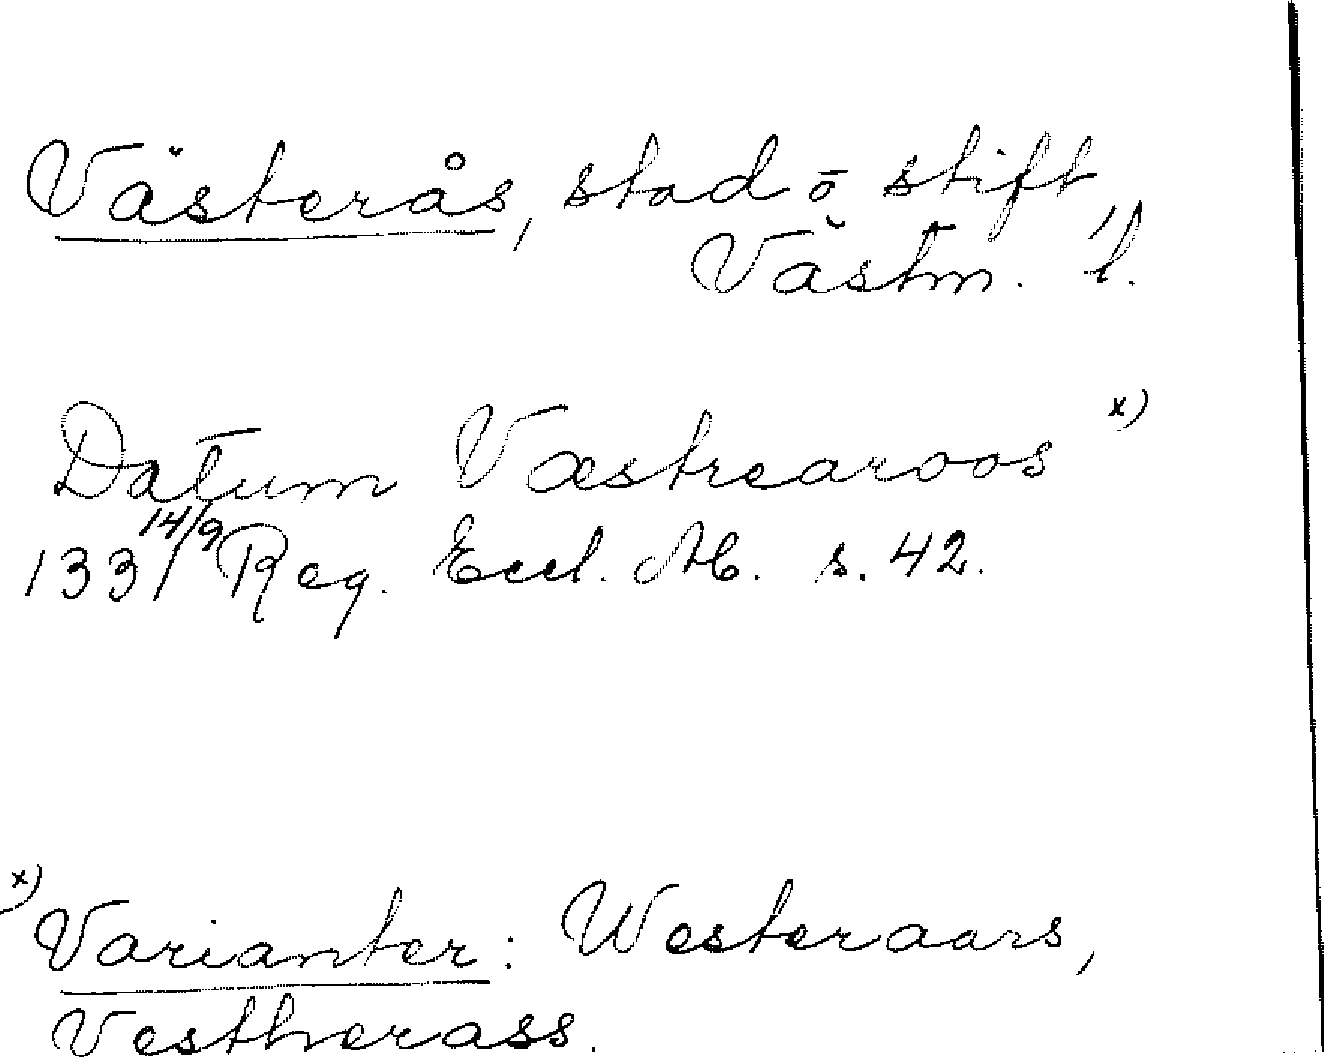 Västerås, stad o stift,
Västm. l.
Datum Væstrearoos x)
1331 14/9 Reg. Eccl. M. s. 42.
x) Varianter: Westeraars,
Vestherass.